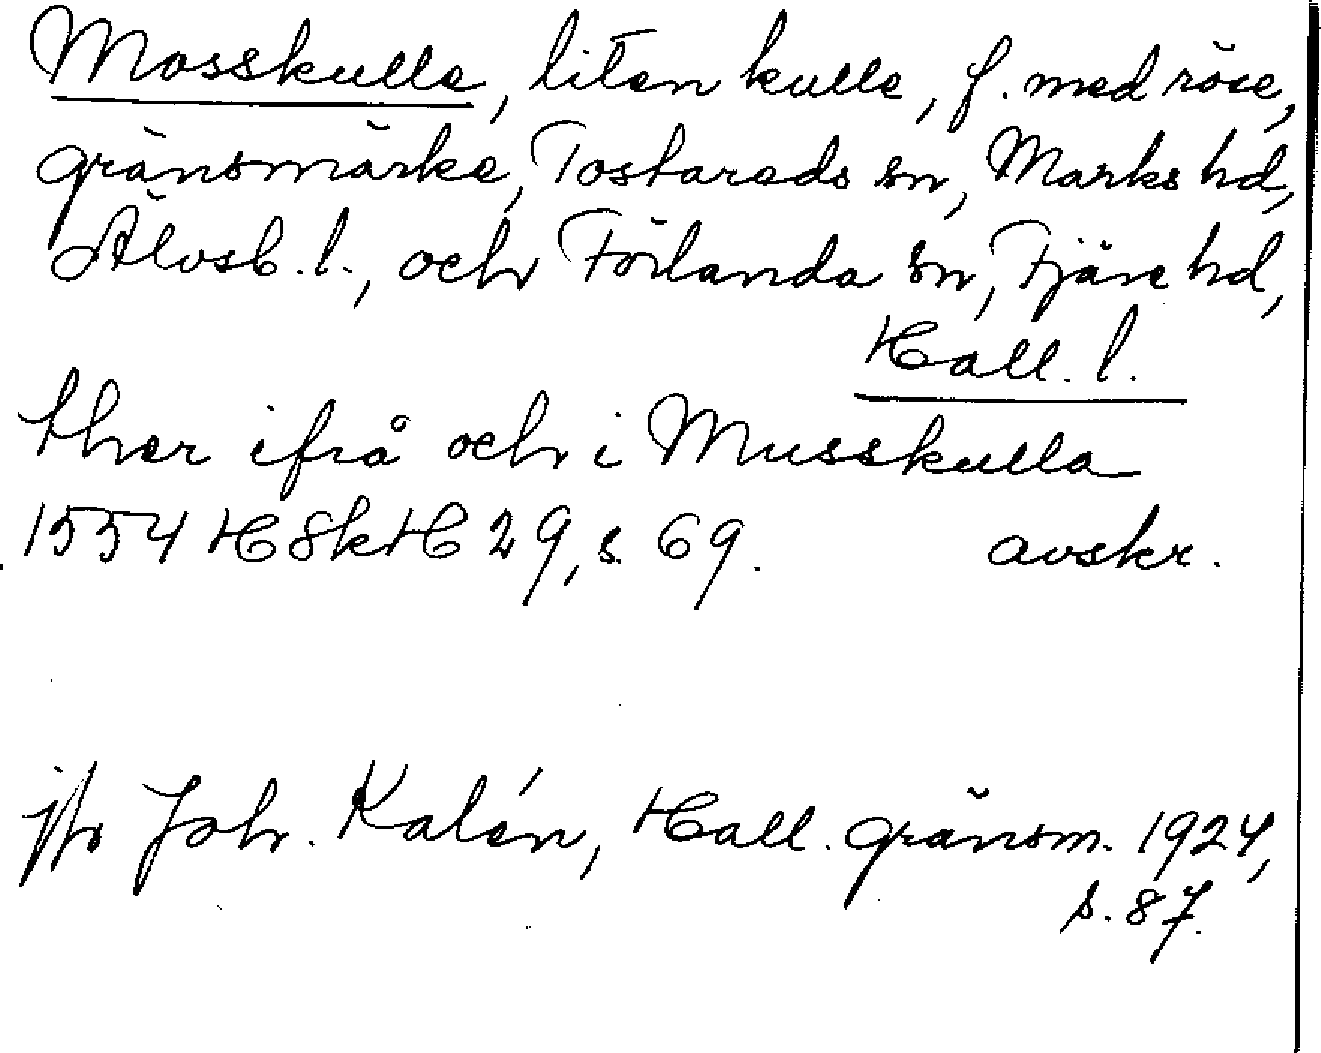 Mosskulle, liten kulle, f. med röse,
gränsmärke, Tostareds sn, Marks hd,
Älvsb. l., och Förlanda sn, Fjäre hd,
Hall. l.
ther ifrå och i Musskulla
1554 HSkH 29, s. 69. avskr.
jfr Joh. Kalén, Hall. gränsm. 1924,
s. 87.